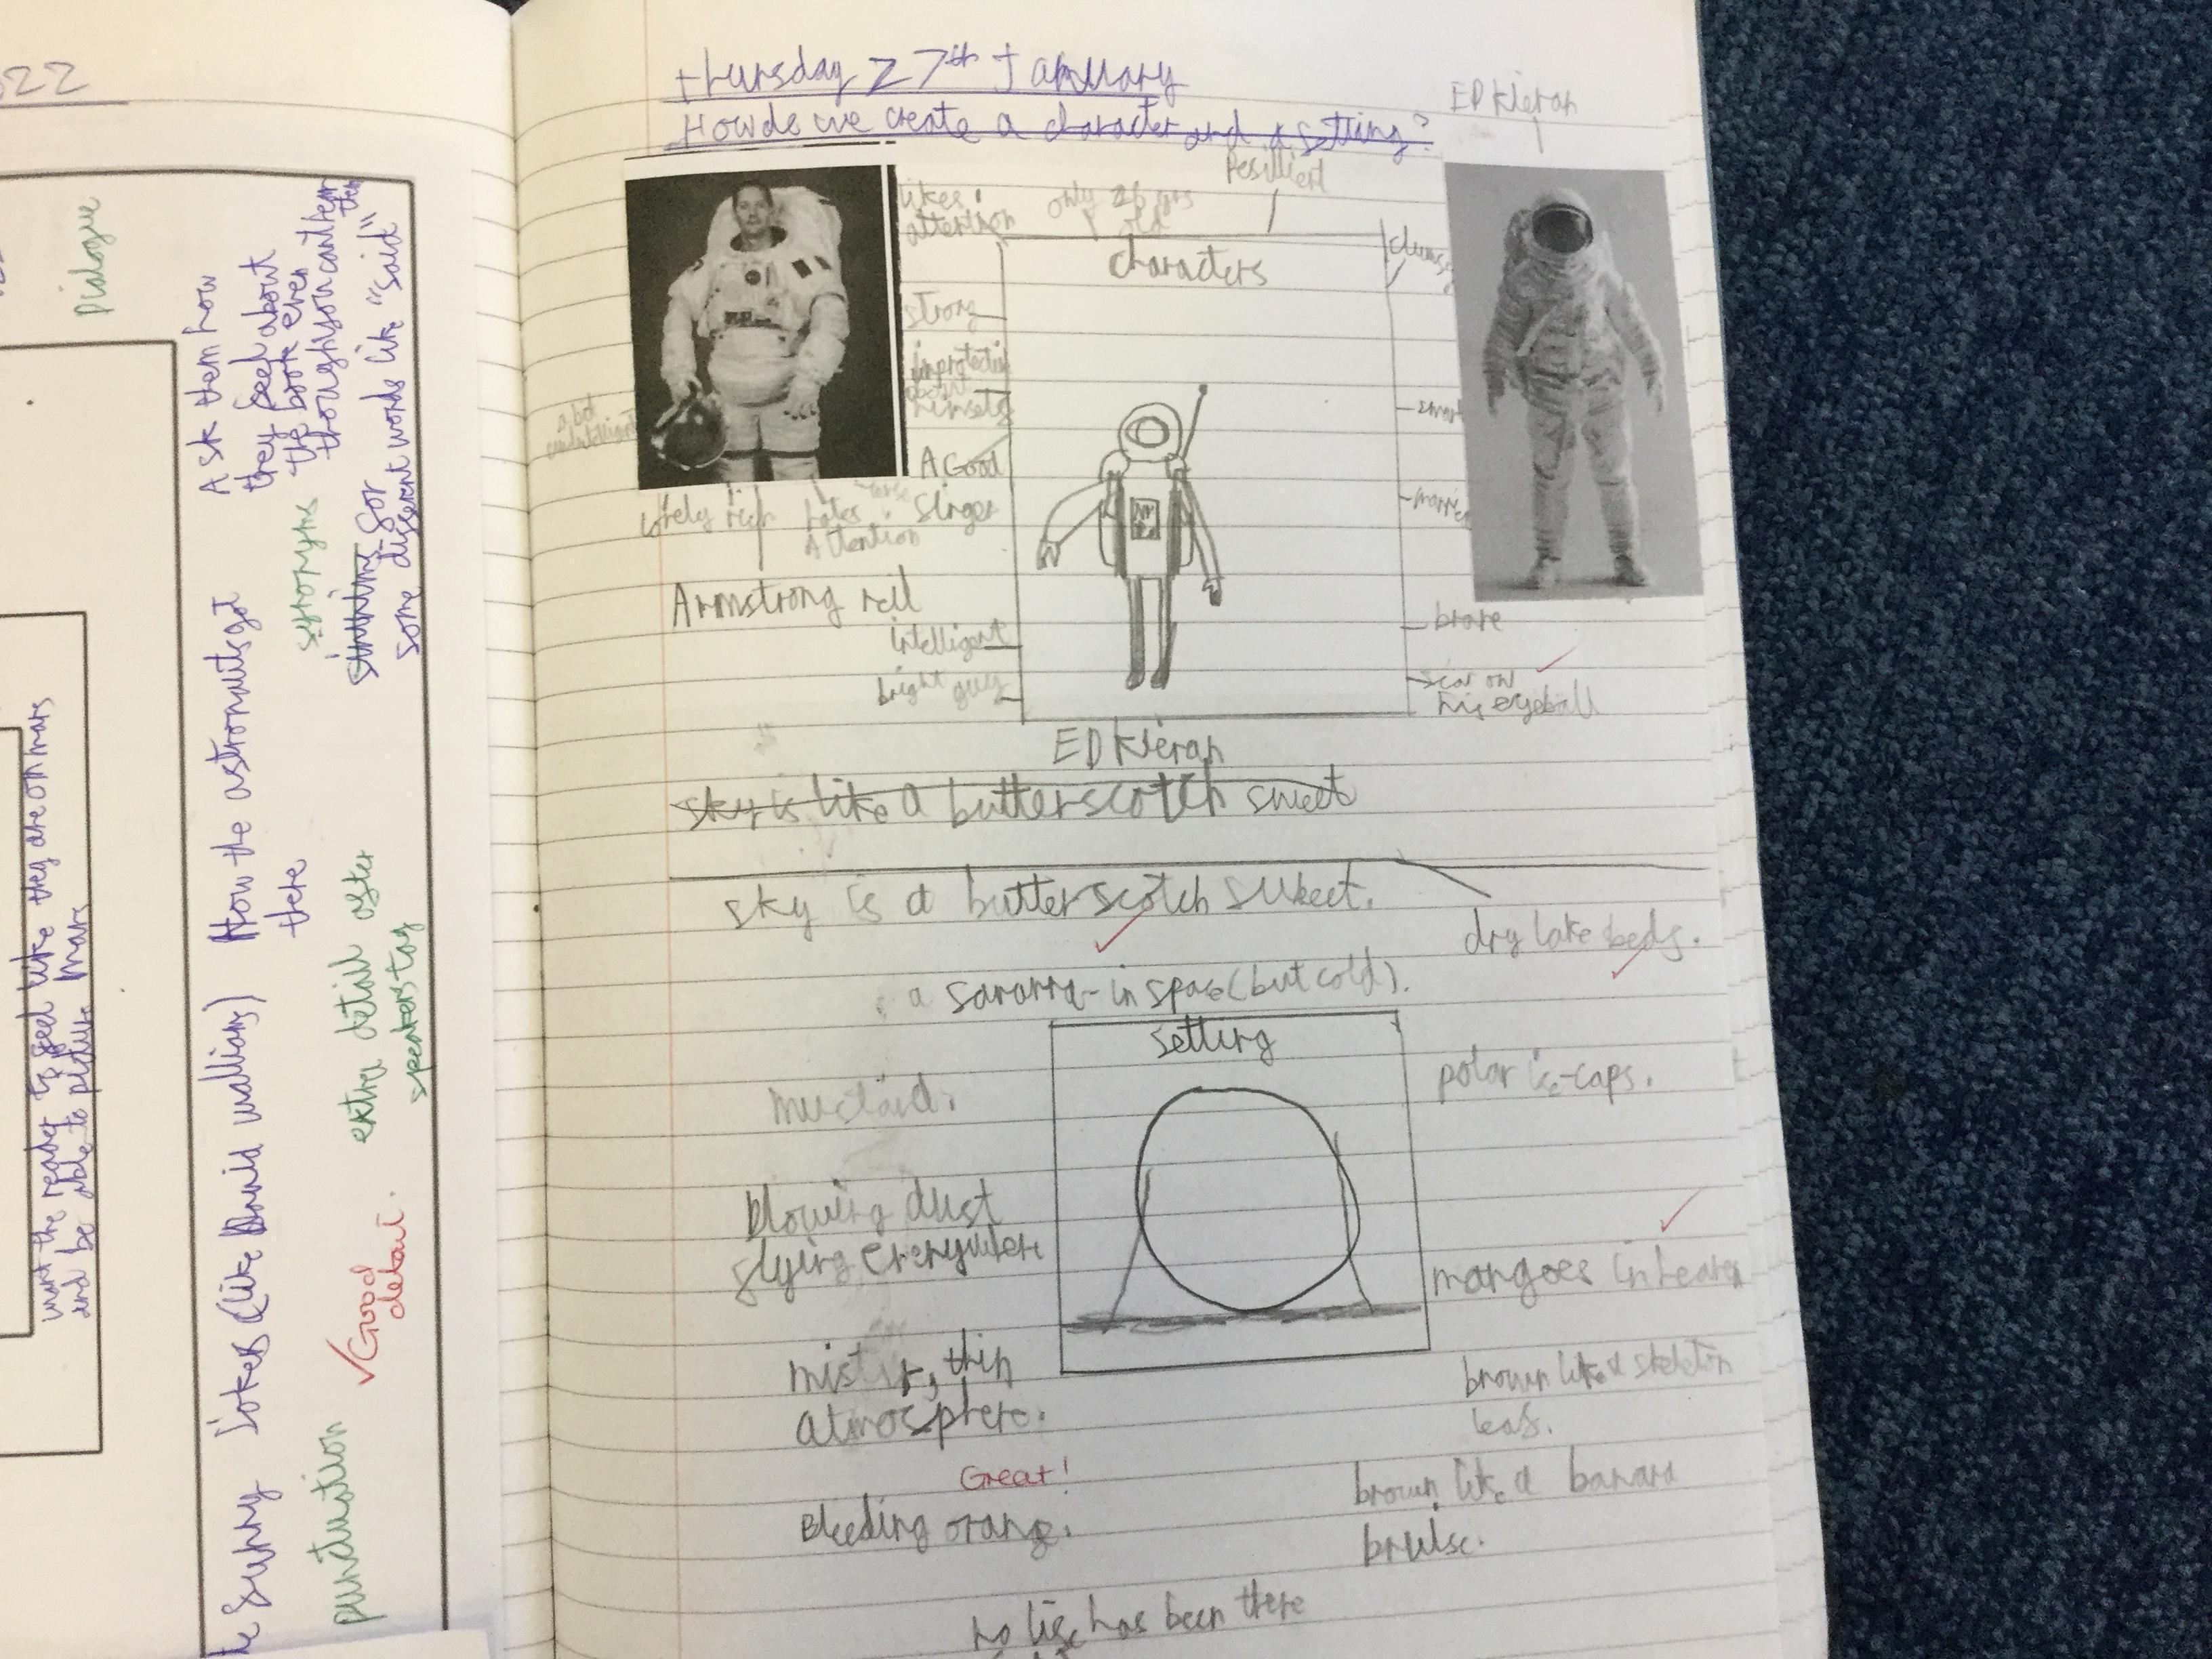 022
Dialogue
Ask them how
they feel about
the book even
though you can hear
them
synonyms
for
some different words like "said"
How the astronauts got
there
extra detail after
speakers tag
want the reader to feel like they are on mars
and be able to picture mars
jokes (like David walliams)
be funny
punctuation
✓Good
detail.
thursday 27th January
How do we create a character and a setting?
ED Kieran
likes
attention
only 26 yrs
old
Resilliert
characters
clumsy
strong
himself
a bit
A Good
singer
smart
lovely rich
hates
Attention
Armstrong neil
intelligent
bright guy
brave
scar on
his eyeball
ED Kieran
sky is like a butterscotch sweet
sky is a butterscotch sweet.
dry lake beds.
a sararra-in space (but cold).
setting
polar ice-caps.
Blowing dust
flying everywhere
mangoes in heaven
thin
atmosphere.
brown like a skeleton
leaf.
Great!
Bleeding orange.
brown like a banana
bruise.
no life has been there